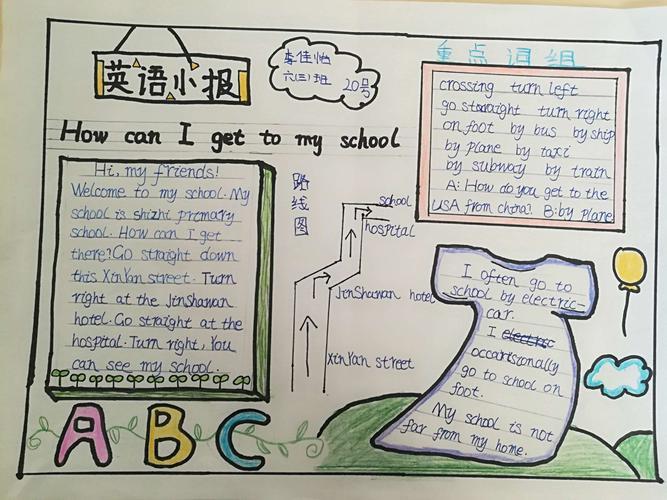 英语小报
李佳怡
六(三)班 20号
重点词组
How can I get to my school
crossing turn left
go straight turn right
on foot by bus by ship
by plane by taxi
by subway by train
A: How do you get to the
USA from china? B: by plane
Hi, my friends!
Welcome to my school. My
school is shizhi premary
school. How can I get
there? Go straight down
this XinYan street. Turn
right at the JinShawan
hotel. Go straight at the
hospital. Turn right, You
can see my school.
路线图
school
hospital
JinShawan hotel
XinYan street
I often go to
school by electric-
car.
I
occartisionally
go to school on
foot.
My school is not
far from my home.
ABC